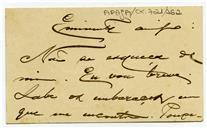 APAF/CX.72/262
Eminente amigo:
Não se esqueça de
mim. Eu vou breve
Sabe os embaraços em
que me encontro.